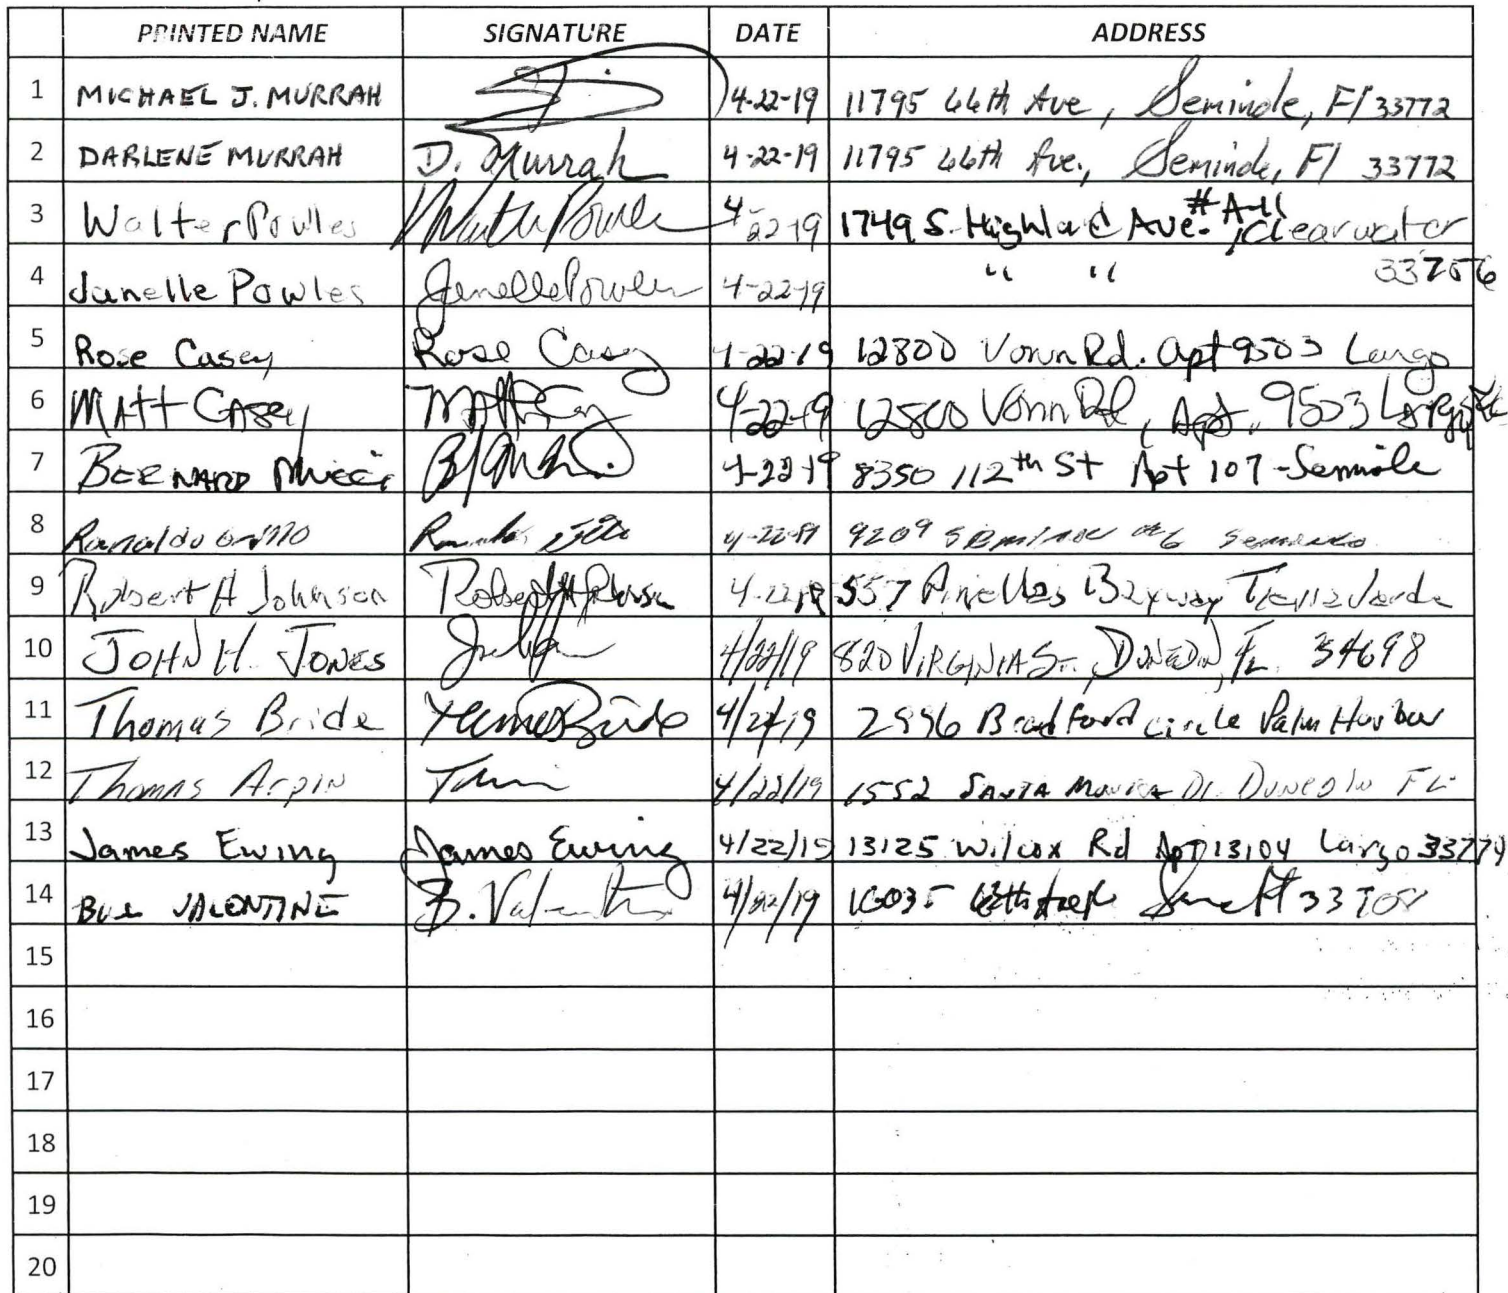 PRINTED NAME SIGNATURE DATE ADDRESS
1 MICHAEL J. MURRAH 4-22-19 11795 66th Ave, Seminole, Fl 33772
2 DARLENE MURRAH D. Murrah 4-22-19 11795 66th Ave., Seminole, Fl 33772
3 Walter Powles Walter Powles 4-22-19 1749 S. Highland Ave. #A-11, Clearwater
4 Janelle Powles Janelle Powles 4-22-19 " " 33756
5 Rose Casey Rose Casey 4-22-19 12800 Vonn Rd. Apt 9503 Largo
6 MATT CASEY Matt Casey 4-22-19 12800 Vonn Rd, Apt. 9503 Largo, FL
7 BERNARD 4-22-19 8350 112th St Apt 107 - Seminole
8 Ranaldo 4-22-19 9209
9 Robert H Johnson Robert H Johnson 4-22-19 557 Pinellas Bayway Tierra Verde
10 JOHN H. JONES 4/22/19 820 VIRGINIA ST., DUNEDIN, FL 34698
11 Thomas Bride Thomas Bride 4/22/19 2996 Bradford circle Palm Harbor
12 Thomas Arpin 4/22/19 1552 SANTA MONICA Dr. DUNEDIN FL
13 James Ewing James Ewing 4/22/19 13125 Wilcox Rd Apt 13104 Largo 33774
14 BILL VALENTINE B. Valentine 4/22/19
15
16
17
18
19
20